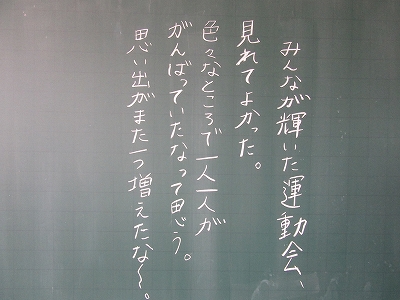 みんなが輝いた運動会、
見れてよかった。
色々なところで一人一人が
がんばっていたなって思う。
思い出がまた一つ増えたな～。